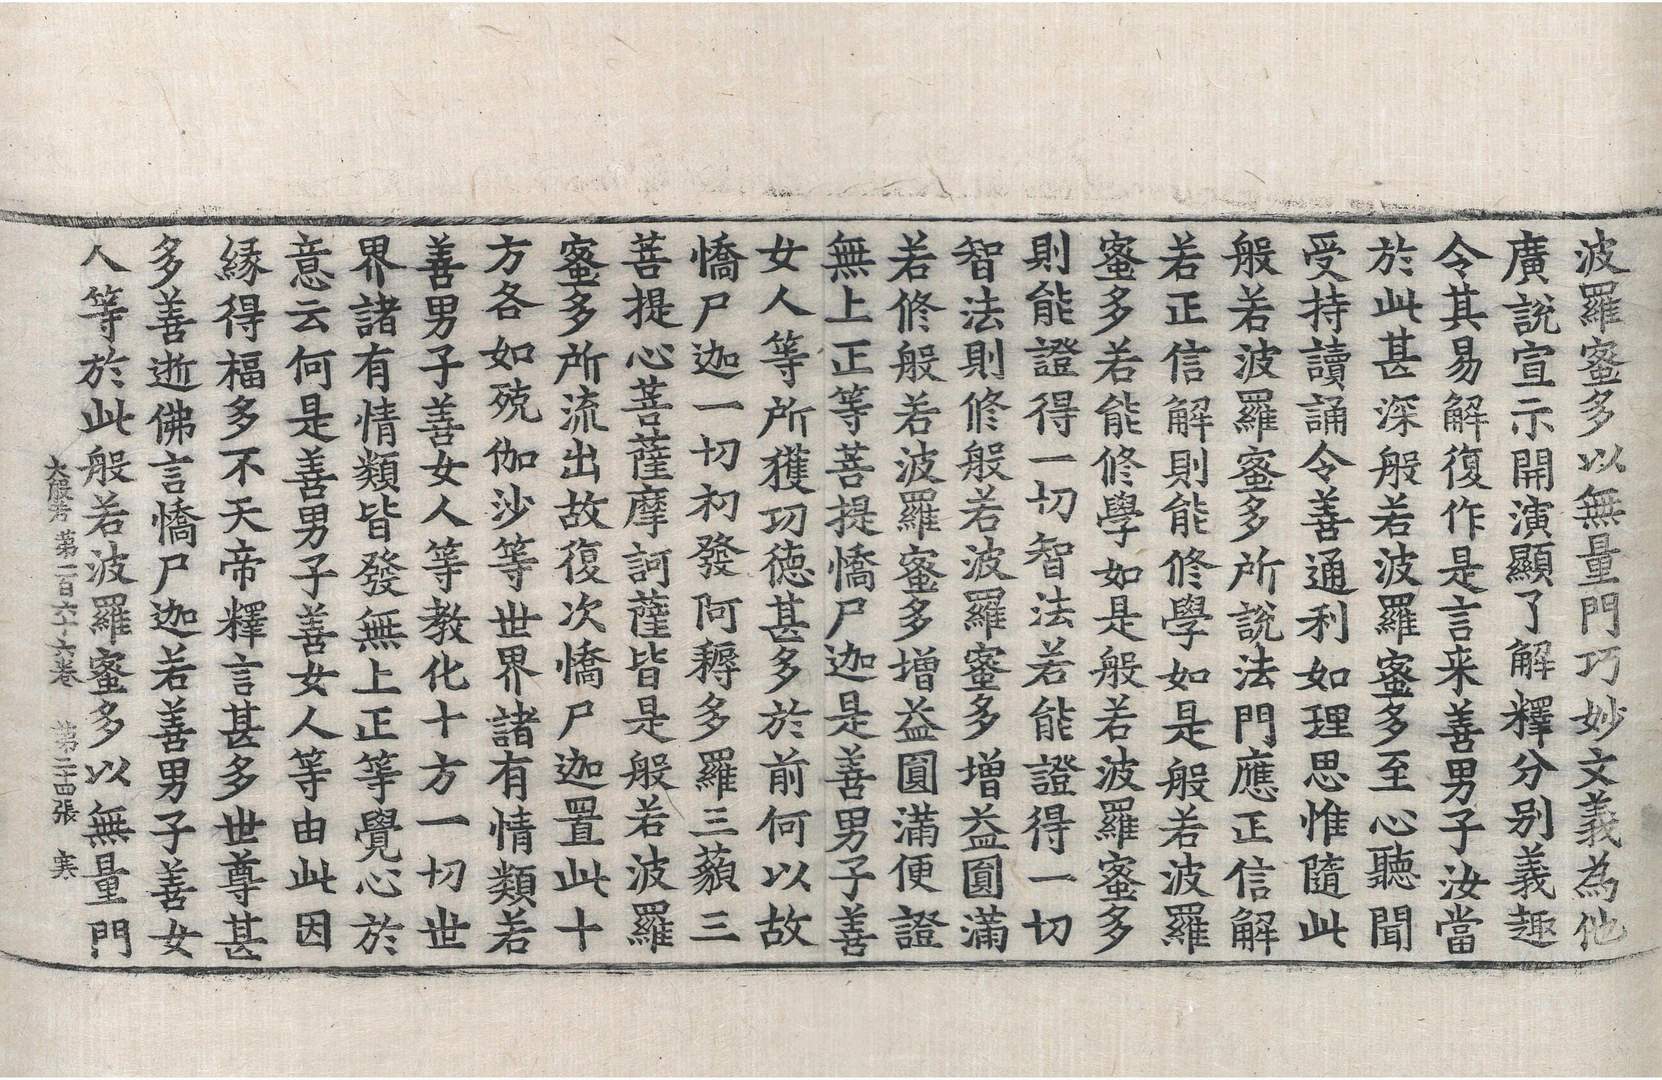 波羅蜜多以無量門巧妙文義為他
廣說宣示開演顯了解釋分別義趣
令其易解復作是言来善男子汝當
於此甚深般若波羅蜜多至心聽聞
受持讀誦令善通利如理思惟隨此
般若波羅蜜多所說法門應正信解
若正信解則能修學如是般若波羅
蜜多若能修學如是般若波羅蜜多
則能證得一切智法若能證得一切
智法則修般若波羅蜜多增益圓滿
若修般若波羅蜜多增益圓滿便證
無上正等菩提憍尸迦是善男子善
女人等所獲功德甚多於前何以故
憍尸迦一切初發阿耨多羅三藐三
菩提心菩薩摩訶薩皆是般若波羅
蜜多所流出故復次憍尸迦置此十
方各如殑伽沙等世界諸有情類若
善男子善女人等教化十方一切世
界諸有情類皆發無上正等覺心於
意云何是善男子善女人等由此因
緣得福多不天帝釋言甚多世尊甚
多善逝佛言憍尸迦若善男子善女
人等於此般若波羅蜜多以無量門
大般若 第一百六十六卷 第二十四張 寒